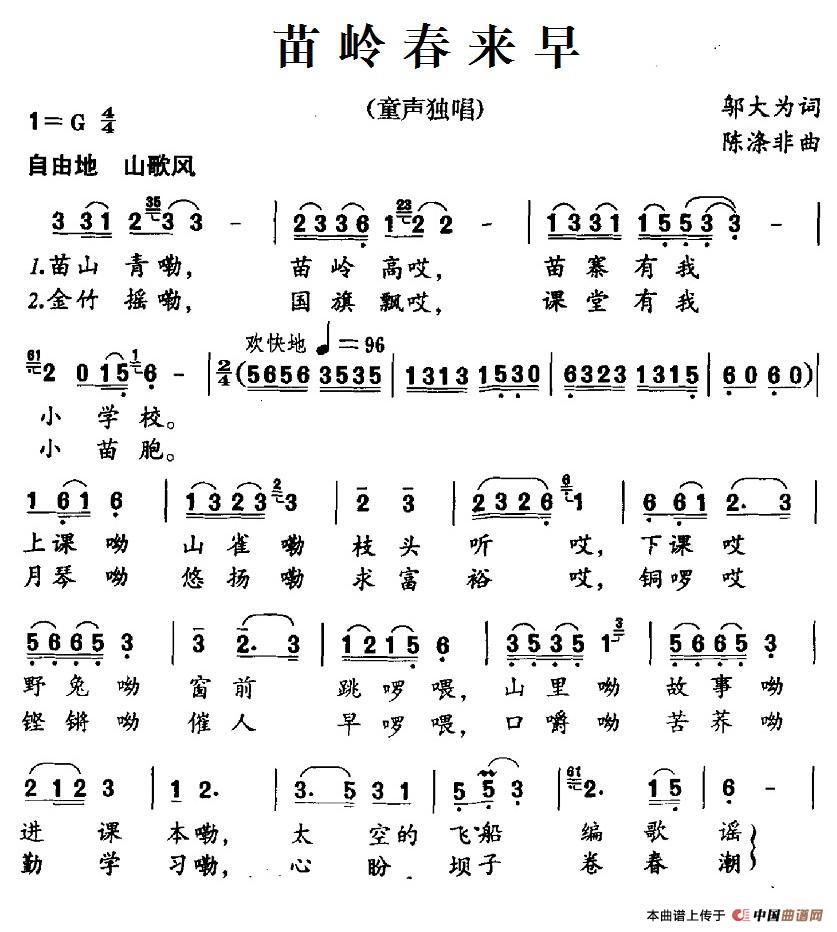 苗岭春来早
(童声独唱)
1=G 4/4
邬大为词
陈涤非曲
自由地 山歌风
35 23
3 331 2 3 3 - | 2336 1 2 2 - | 1331 1553 3 -
1.苗山青嘞, 苗岭高哎, 苗寨有我
2.金竹摇嘞, 国旗飘哎, 课堂有我
欢快地 ♩=96
61 1
2 0 15 6 - | 2/4 (5656 3535 | 1313 1530 | 6323 1315 | 6060) |
小学校。
小苗胞。
2 6
1 61 6 | 1323 3 | 2 3 | 2326 1 | 6 61 2. 3
上课呦 山雀嘞 枝头听哎, 下课哎
月琴呦 悠扬嘞 求富裕哎, 铜啰哎
3
5665 3 | 3 2. 3 | 1215 6 | 3535 1 | 5665 3
野兔呦 窗前 跳啰喂, 山里呦 故事呦
铿锵呦 催人 早啰喂, 口嚼呦 苦荞呦
61
212 3 | 1 2. | 3. 5 331 | 5 5 3 | 2. 15 | 6 -
进课本嘞, 太空的飞船编歌谣
勤学习嘞, 心盼坝子卷春潮
本曲谱上传于 中国曲谱网